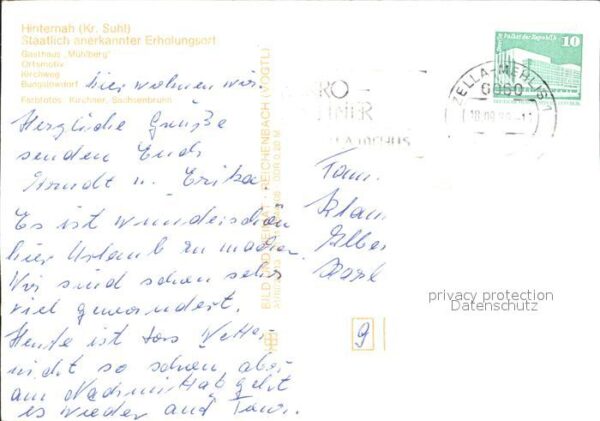 Hinternah (Kr. Suhl)
Staatlich anerkannter Erholungsort
Gasthaus „Mühlberg"
Ortsmotiv
Kirchweg
Bungalowdorf
hier wohnen wir.
Farbfotos: Kirchner, Sachsenbrunn
Herzliche Grüße
senden Euch
u. Erika
Es ist wunderschön
hier Urlaub zu machen.
Wir sind schon sehr
viel gewandert.
Heute ist das Wetter
nicht so schön, aber
am Nachmittag geht
es wieder auf Tour.
BILD UND HEIMAT REICHENBACH (VOGTL)
Fam.
Klau
ZELLA-MEHLIS 1
6060
10
9
privacy protection
Datenschutz